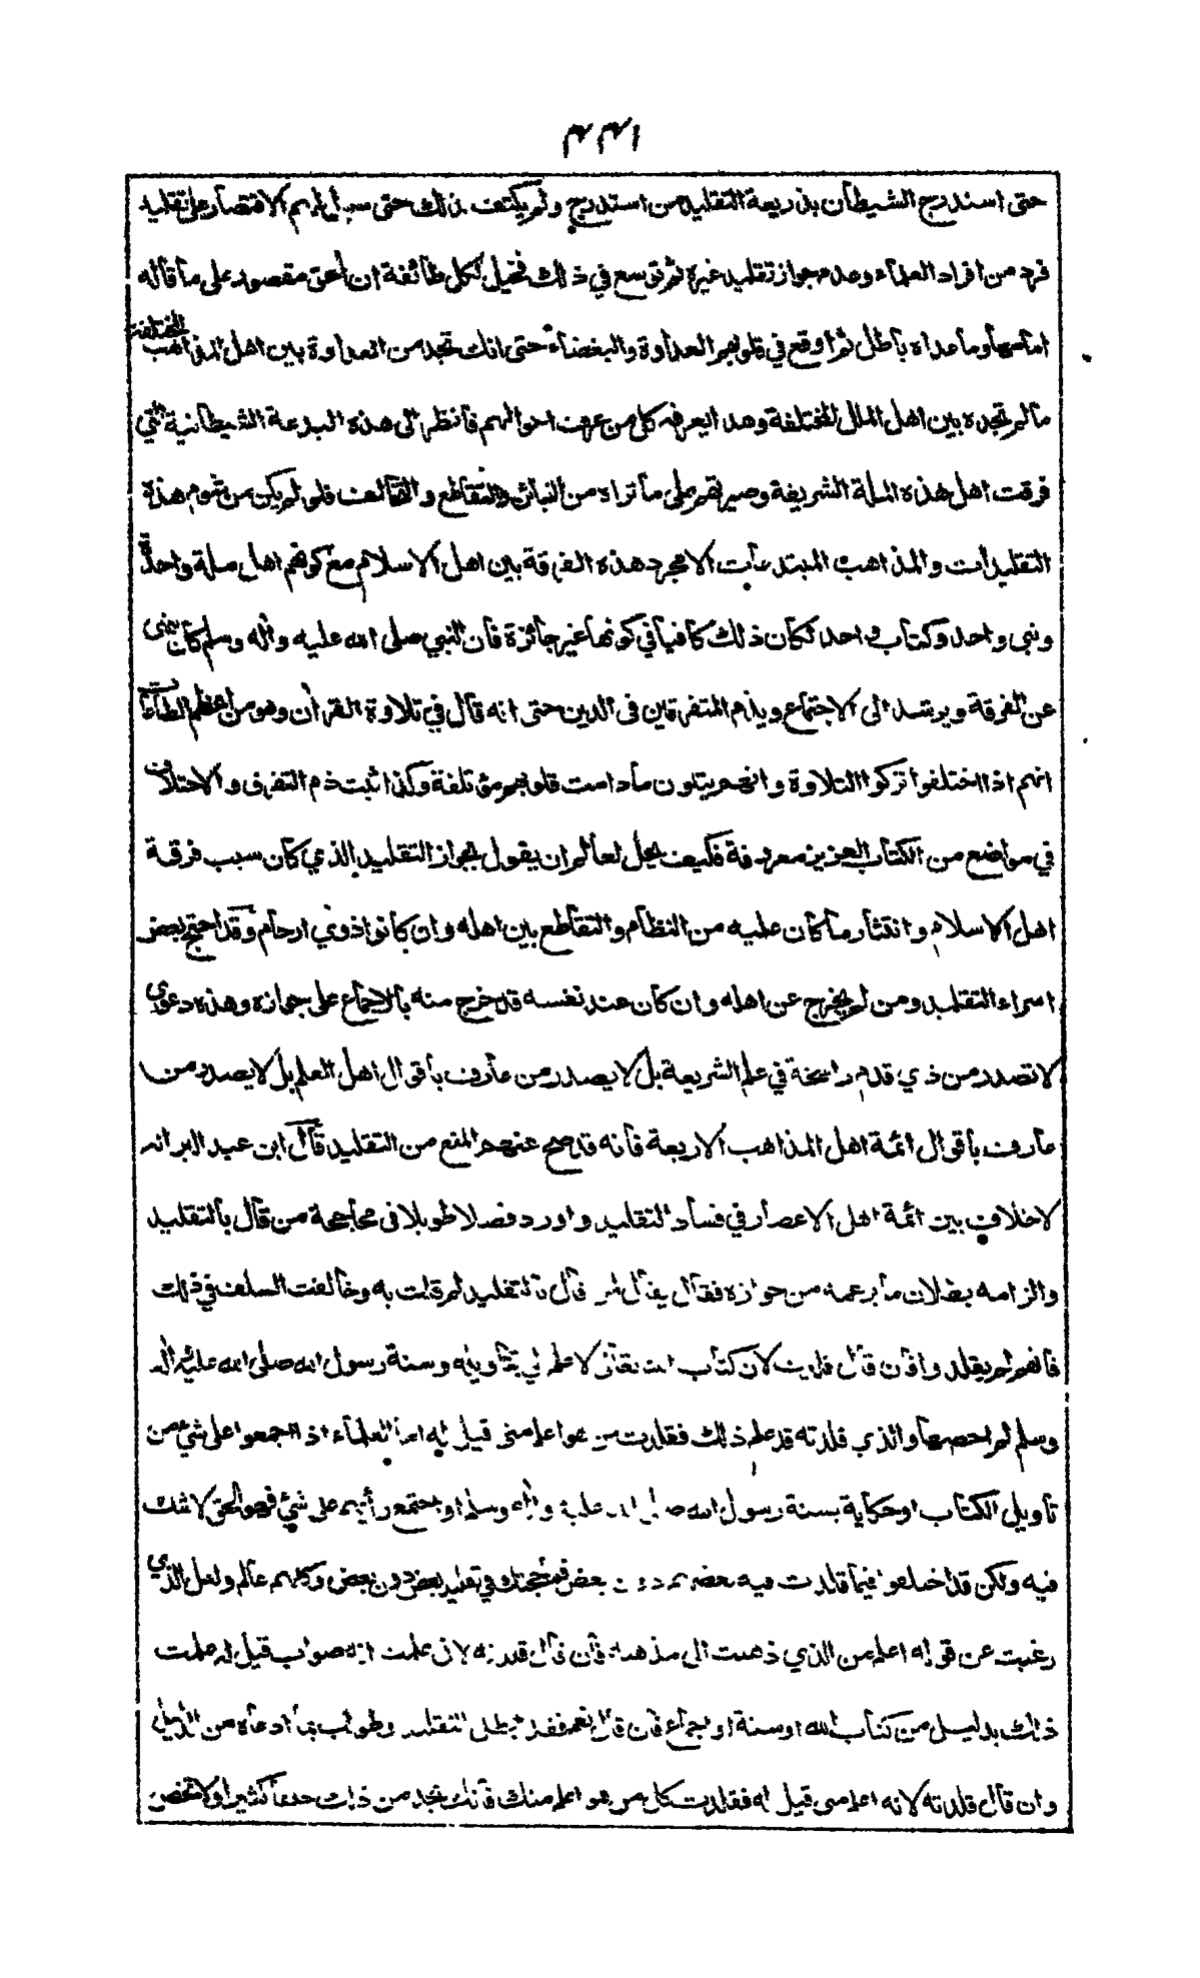 ٢٣١
حتى استدرج الشيطان بذريعة التقليد من استدرج ولم يكتف بذلك حتى سول لهم الاقتصار على تقليد
فرد من افراد العلماء وعدم جواز تقليد غيره ثم توسع في ذلك فخيل لكل طائفة ان الحق مقصور على ما قاله
امامها وما عداه باطل ثم اوقع في قلوبهم العداوة والبغضاء حتى انك تجد من العداوة بين اهل المذاهب المختلفة
ما لم تجده بين اهل الملل المختلفة وهذا يعرفه كل من عرف احوالهم فانظر الى هذه البدعة الشيطانية التي
فرقت اهل هذه الملة الشريفة وصيرتهم على ما تراه من التباين والتقاطع والتخالف فلو لم يكن من شوم هذه
التقليدات والمذاهب المبتدعات الا مجرد هذه الفرقة بين اهل الاسلام مع كونهم اهل ملة واحدة
ونبي واحد وكتاب واحد لكان ذلك كافيا في كونها غير جائزة فان النبي صلى الله عليه واله وسلم كان ينهى
عن الفرقة ويرشد الى الاجتماع ويذم المتفرقين في الدين حتى انه قال في تلاوة القرأن وهو من اعظم الطاعات
انهم اذا اختلفوا تركوا التلاوة وانهم يتلون ما دامت قلوبهم مؤتلفة وكذا ثبت ذم التفرق والاختلاف
في مواضع من الكتاب العزيز معروفة فكيف يحل لعالم ان يقول بجواز التقليد الذي كان سبب فرقة
اهل الاسلام وانتثار ما كان عليه من النظام والتقاطع بين اهله وان كانوا ذوي ارحام وقد احتج بعض
اسراء التقليد ومن لم يخرج عن اهله وان كان عند نفسه قد خرج منه بالاجماع على جوازه وهذه دعوى
لا تصدر من ذي قدم راسخة في علم الشريعة بل لا يصدر من عارف باقوال اهل العلم بل لا يصدر من
عارف باقوال ائمة اهل المذاهب الاربعة فانه قد صح عنهم المنع من التقليد قال ابن عبد البر انه
لا خلاف بين ائمة اهل الاعصار في فساد التقليد واورد فصلا طويلا في محاججة من قال بالتقليد
والزامه بطلان ما يزعمه من جوازه فقال يقال لمن قال بالتقليد لم قلت به وخالفت السلف في ذلك
فانهم لم يقلدوا فان قال قلدت لان كتاب الله تعالى لا علم لي بتأويله وسنة رسول الله صلى الله عليه واله
وسلم لم احصها والذي قلدته قد علم ذلك فقلدت من هو اعلم مني قيل له اما العلماء اذا اجمعوا على شيء من
تأويل الكتاب او حكاية بسنة رسول الله صلى الله عليه واله وسلم او اجتمع رأيهم على شيء فهو الحق لا شك
فيه ولكن قد اختلفوا فيما قلدت فيه بعضهم دون بعض فما حجتك في تقليد بعض دون بعض وكلهم عالم ولعل الذي
رغبت عن قوله اعلم من الذي ذهبت الى مذهبه فان قال قلدته لاني علمت انه صواب قيل له علمت
ذلك بدليل من كتاب الله او سنة او اجماع فان قال نعم فقد ابطل التقليد وطولب بما ادعاه من الدليل
وان قال قلدته لانه اعلم مني قيل له فقلدت كل من هو اعلم منك فانك تجد من ذلك خلقا كثيرا ولا تخص